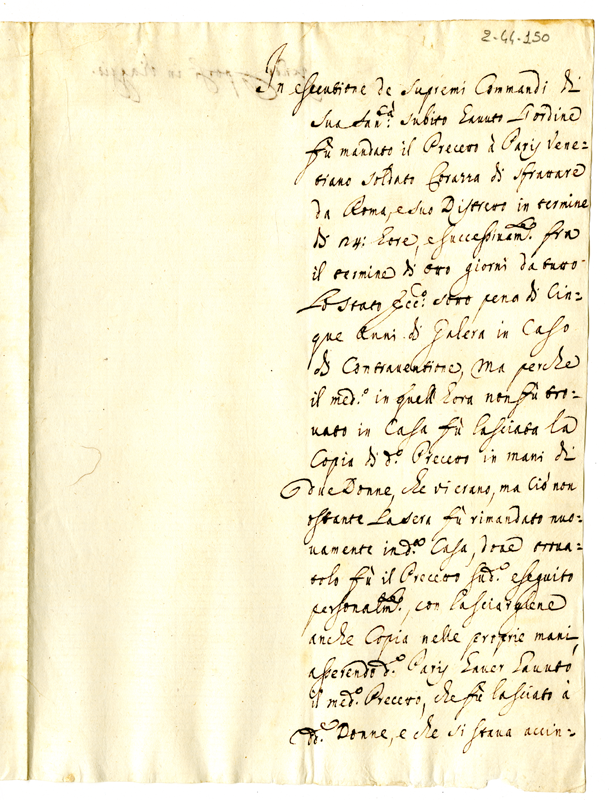 2-44-150
In essecutione de Supremi Commandi di
Sua San.tà Subito hauuto l'ordine
fù mandato il Precetto à Paris Vene=
tiano Soldato Corazza di sfrattare
da Roma, e suo Distretto in termine
di 24: hore, e successiuam.te fra
il termine di otto giorni da tutto
Lo stato Ecc.co sotto pena di Cin=
que Anni di Galera in Caso
di Contrauentione, Ma perche
il med.o in quell'hora non fù tro=
uato in Casa fù lasciata la
Copia di d.o Precetto in mani di
due Donne, che vi erano, ma ciò non
ostante La sera fù rimandato nuo=
uamente in d.a Casa, doue troua=
tolo fù il Precetto sud.o eseguito
personalm.te, con lasciargliene
anche Copia nelle proprie mani,
asserendo d.o Paris hauer hauuto
il med.o Precetto, che fù lasciato à
dd.e Donne, e che si staua accin=